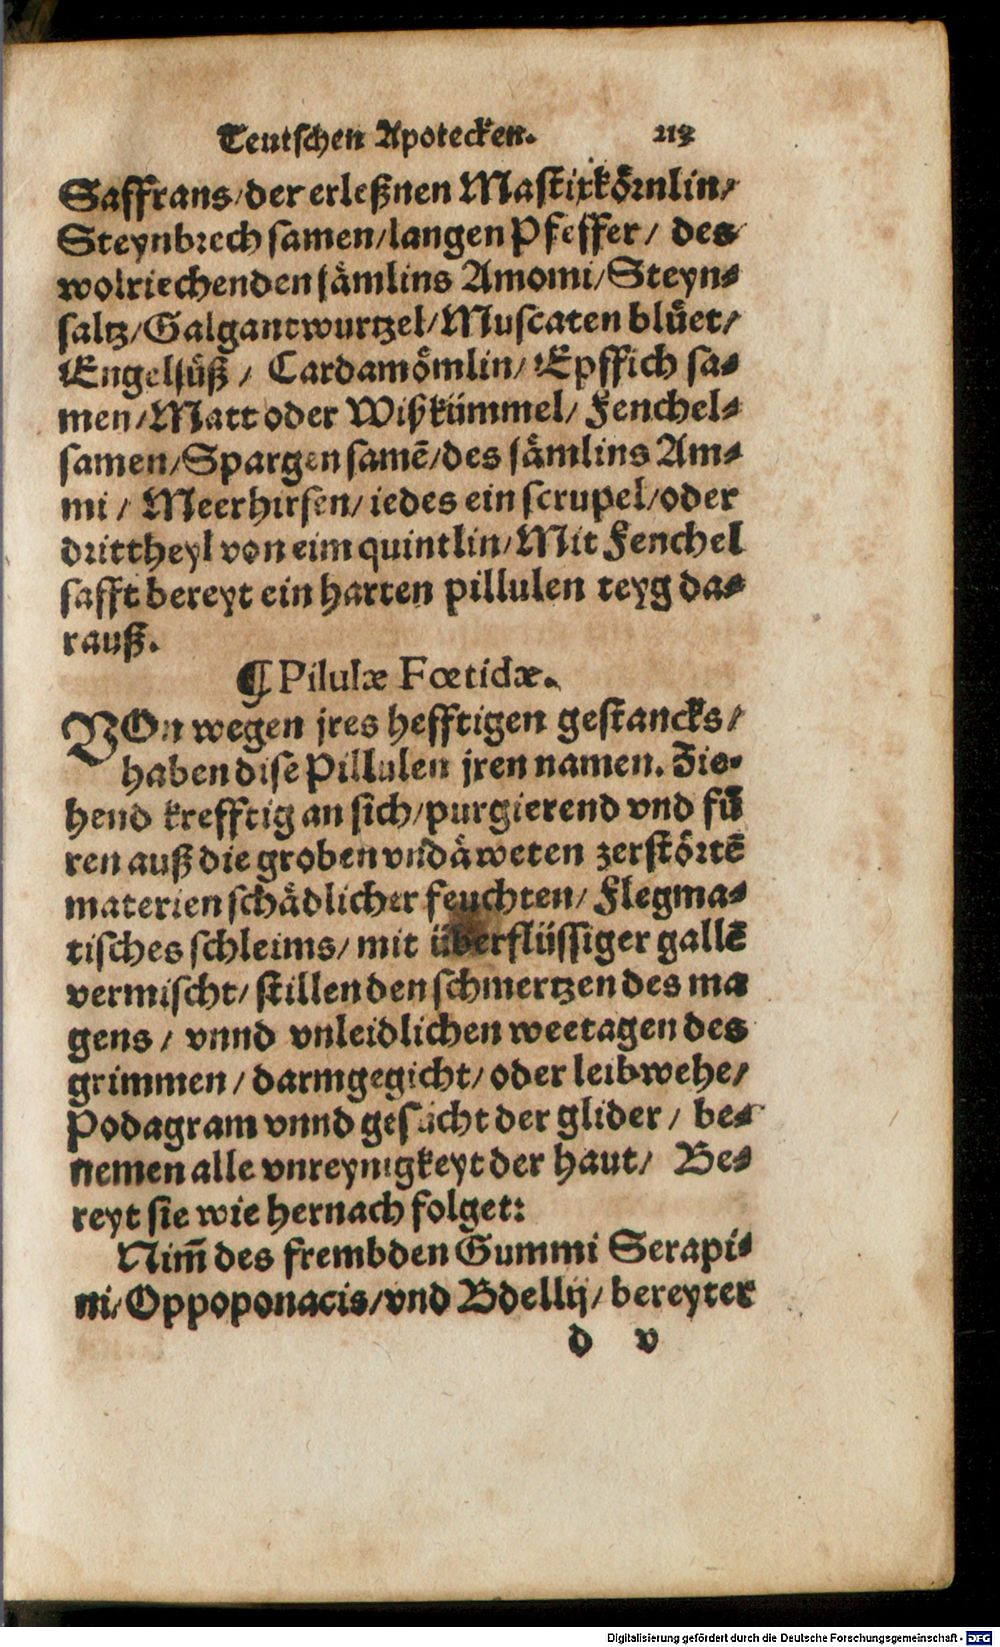 Teutschen Apotecken. 213
Saffrans/der erleßnen Mastixkoͤrnlin/
Steynbrech samen/langen Pfeffer/ des
wolriechenden saͤmlins Amomi/Steyn⸗
saltz/Galgantwurtzel/Muscaten bluͤet/
Engelsuͤß/ Cardamoͤmlin/ Epffich sa⸗
men/Matt oder Wißkümmel/ Fenchel⸗
samen/Spargen samẽ/des saͤmlins Am⸗
mi/ Meerhirsen/ iedes ein scrupel/oder
drittheyl von eim quintlin/Mit Fenchel
safft bereyt ein harten pillulen teyg da⸗
rauß.
¶ Pilulæ Fœtidæ.
VOn wegen jres hefftigen gestancks/
haben dise Pillulen jren namen. Zie⸗
hend krefftig an sich/purgierend vnd fuͤ
ren auß die groben vndaͤweten zerstoͤrtẽ
materien schaͤdlicher feuchten/ Flegma⸗
tisches schleims/ mit überflüssiger gallẽ
vermischt/ stillen den schmertzen des ma
gens/ vnnd vnleidlichen weetagen des
grimmen/ darmgegicht/ oder leibwehe/
Podagram vnnd gesücht der glider/ be⸗
nemen alle vnreynigkeyt der haut/ Be⸗
reyt sie wie hernach folget:
Nim̃ des frembden Gummi Serapi⸗
ni/Oppoponacis/vnd Bdellij/ bereyter
d v
Digitalisierung gefördert durch die Deutsche Forschungsgemeinschaft - DFG